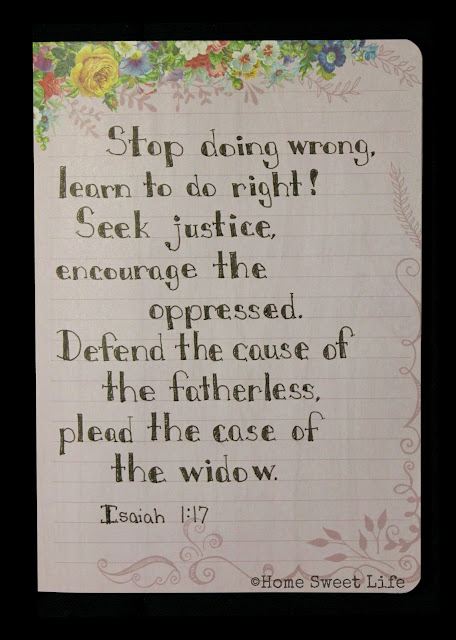 Stop doing wrong,
learn to do right!
Seek justice,
encourage the
oppressed.
Defend the cause of
the fatherless,
plead the case of
the widow.
Isaiah 1:17
©Home Sweet Life